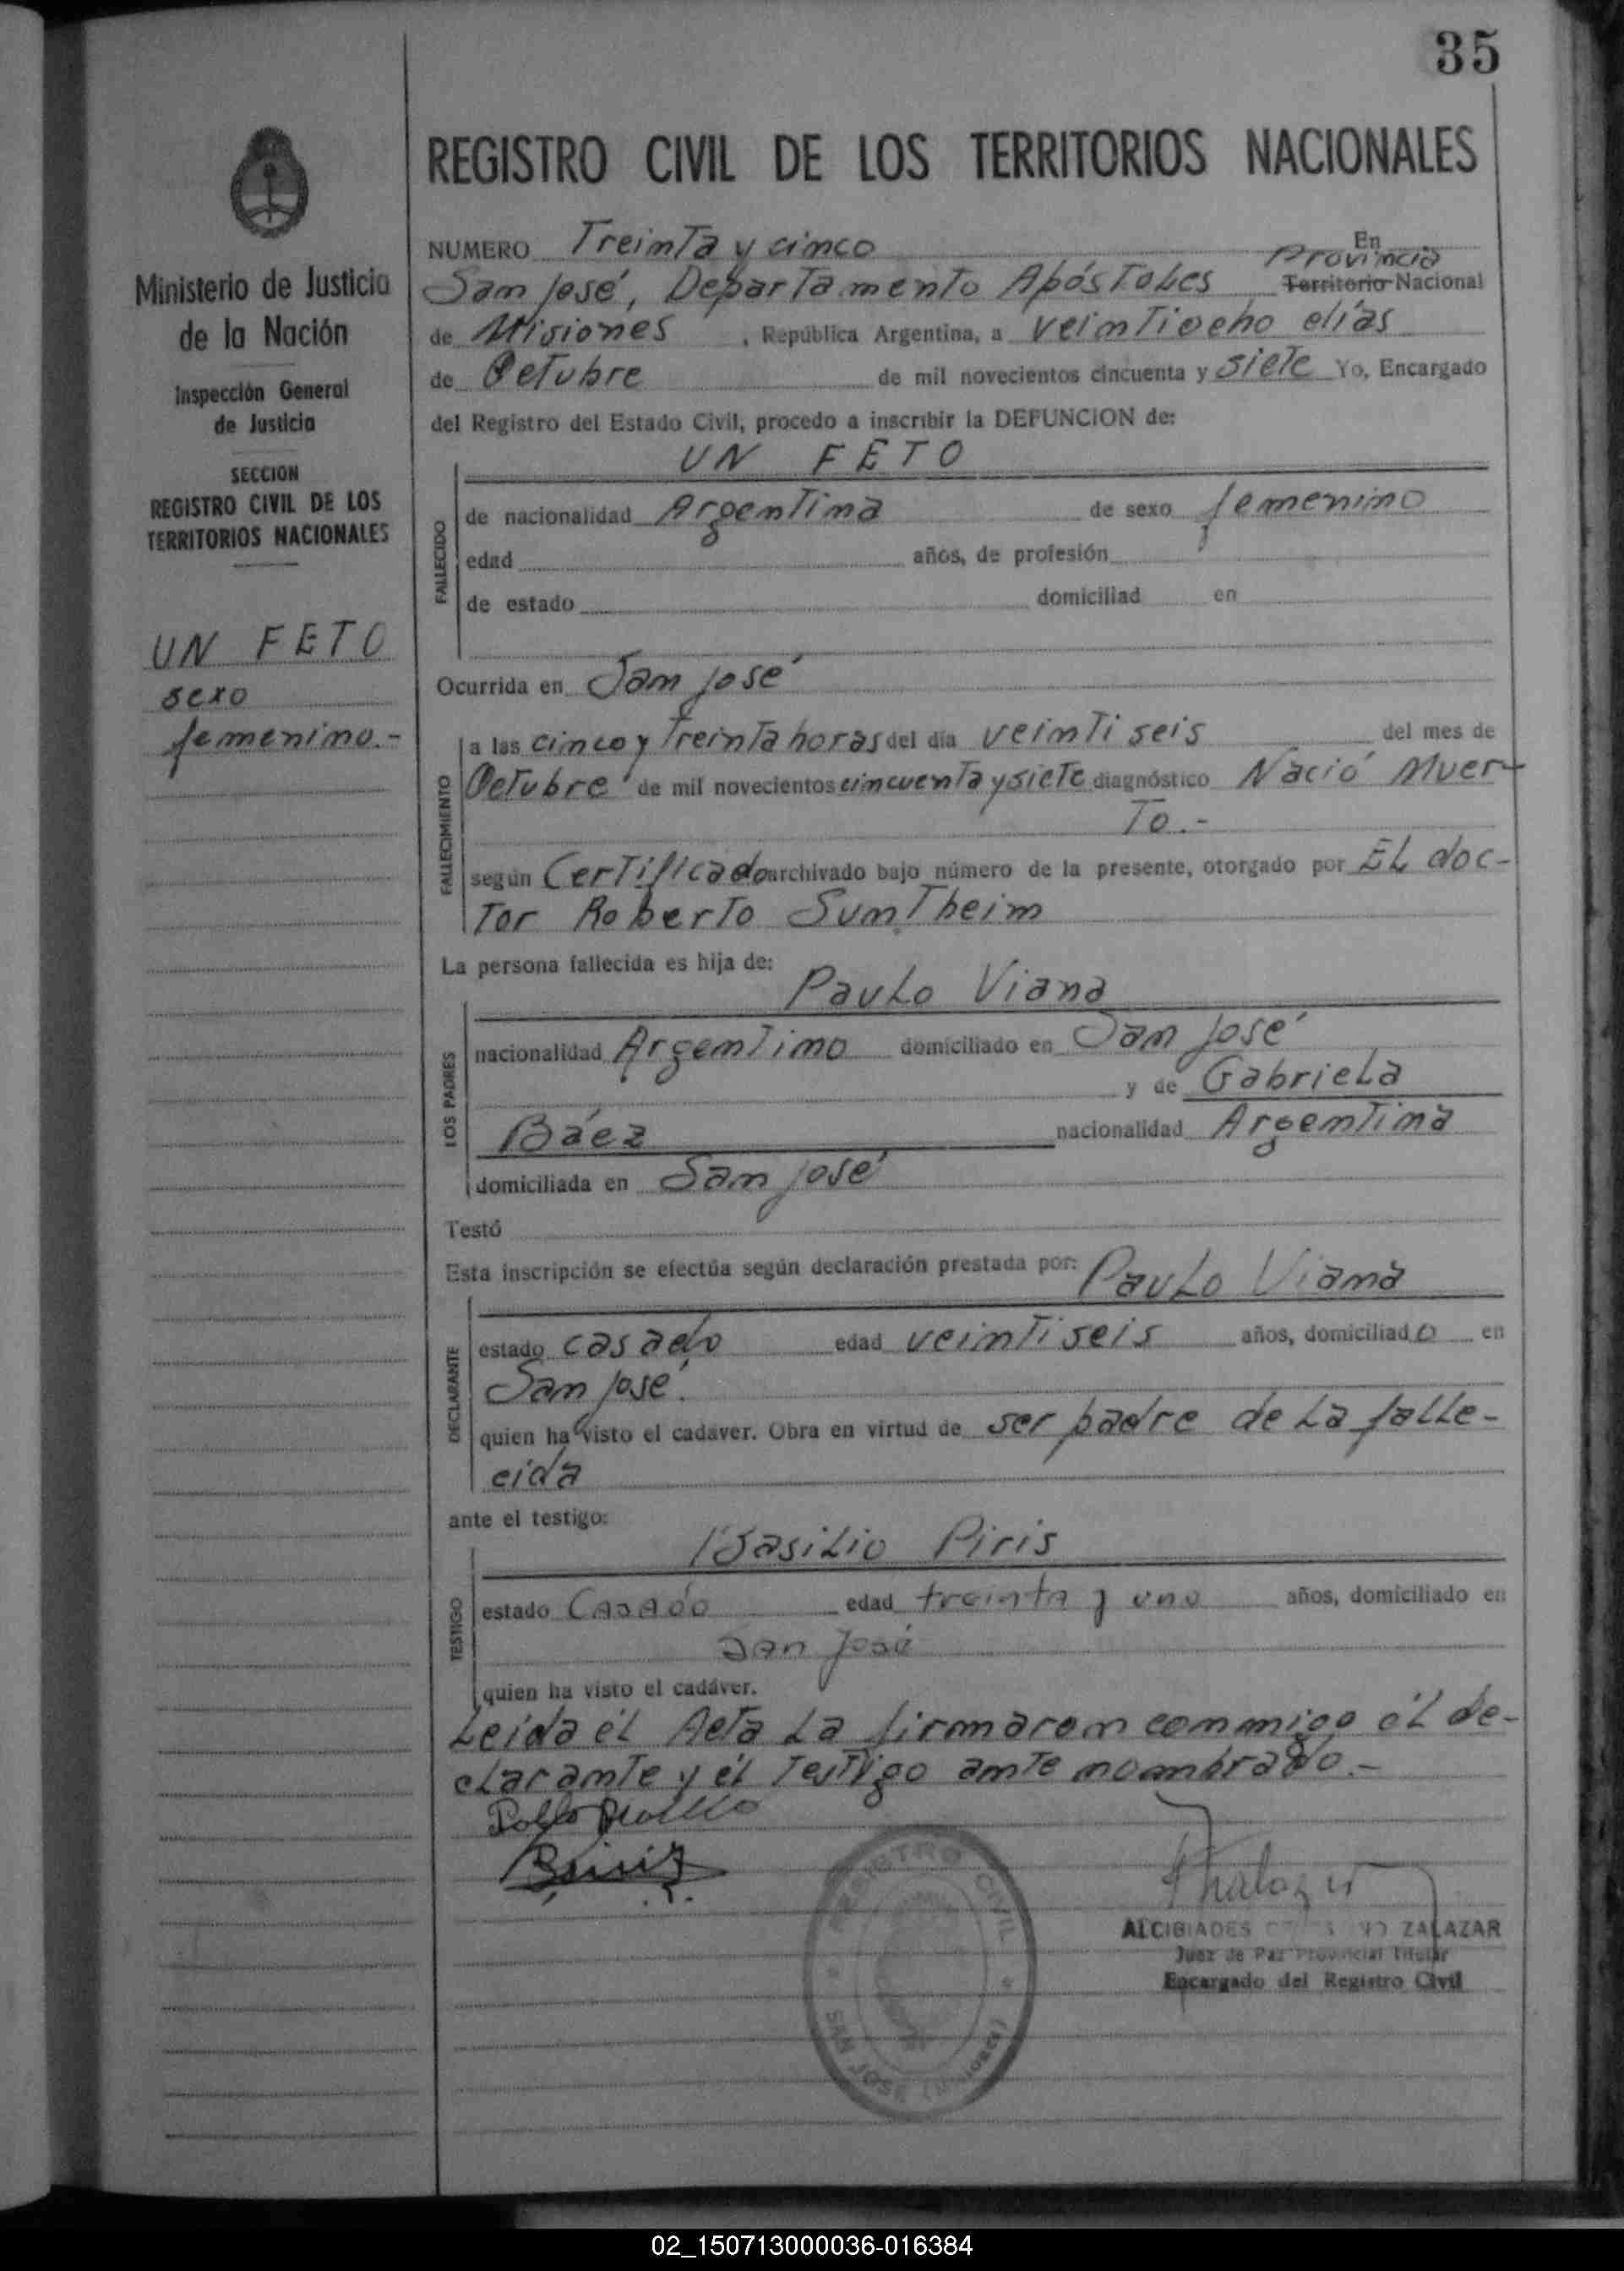 35
Ministerio de Justicia
de la Nación
Inspección General
de Justicia
SECCION
REGISTRO CIVIL DE LOS
TERRITORIOS NACIONALES
UN FETO
sexo
femenino.-
REGISTRO CIVIL DE LOS TERRITORIOS NACIONALES
NUMERO Treinta y cinco En
Provincia
San José, Departamento Apóstoles Territorio Nacional
de Misiones, República Argentina, a veintiocho días
de Octubre de mil novecientos cincuenta y siete Yo, Encargado
del Registro del Estado Civil, procedo a inscribir la DEFUNCION de:
UN FETO
FALLECIDO
de nacionalidad Argentina de sexo femenino
edad años, de profesión
de estado domiciliad en
Ocurrida en San José
FALLECIMIENTO
a las cinco y treinta horas del día veinti seis del mes de
Octubre de mil novecientos cincuenta y siete diagnóstico Nació Muer-
to.-
según Certificado archivado bajo número de la presente, otorgado por EL doc-
tor Roberto Suntheim
La persona fallecida es hija de:
Paulo Viana
LOS PADRES
nacionalidad Argentino domiciliado en San José
y de Gabriela
Báez nacionalidad Argentina
domiciliada en San José
Testó
Esta inscripción se efectúa según declaración prestada por: Paulo Viana
DECLARANTE
estado casado edad veinti seis años, domiciliado en
San José.
quien ha visto el cadáver. Obra en virtud de ser padre de La falle-
cida
ante el testigo:
Basilio Piris
TESTIGO
estado Casado edad treinta y uno años, domiciliado en
San José
quien ha visto el cadáver.
Leida él Acta La firmaron conmigo él de-
clarante y él Testigo ante nombrado.-
REGISTRO CIVIL
SAN JOSE (Misiones)
ALCIBIADES ZALAZAR
Juez de Paz Provincial Titular
Encargado del Registro Civil
02_150713000036-016384